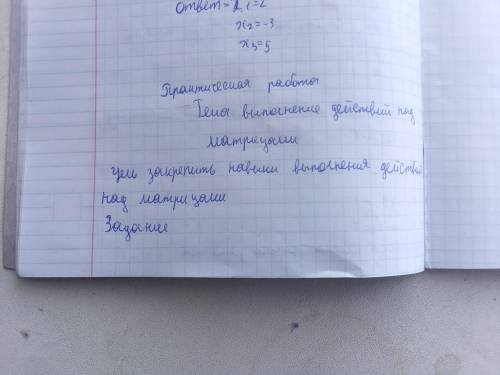 Ответ = x1=2
x2=-3
x3=5
Практическая работа
Тема выполнение действий над
матрицами
Цель закрепить навыки выполнения действий
над матрицами
Задание